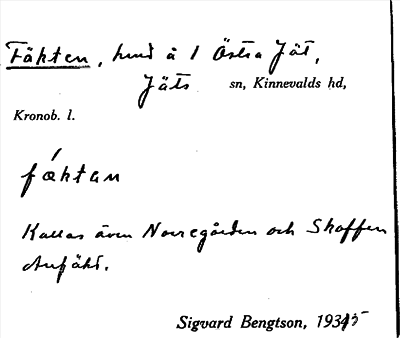 Fäkten, hmd å 1 Östra Jät,
Jäts sn, Kinnevalds hd,
Kronob. l.
fǽktan
Kallas även Norregården och Skoffen
Sigvard Bengtson, 1935